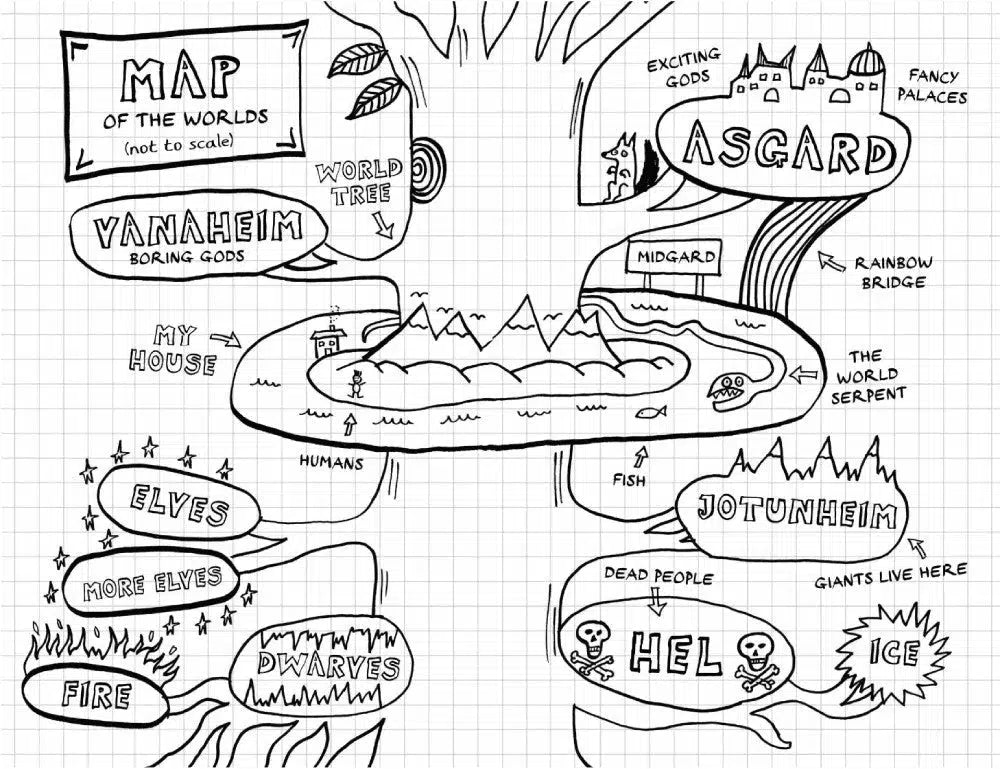 MAP
OF THE WORLDS
(not to scale)
EXCITING
GODS
FANCY
PALACES
ASGARD
WORLD
TREE
VANAHEIM
BORING GODS
MIDGARD
RAINBOW
BRIDGE
MY
HOUSE
THE
WORLD
SERPENT
HUMANS
FISH
ELVES
JOTUNHEIM
MORE ELVES
GIANTS LIVE HERE
DEAD PEOPLE
HEL
ICE
DWARVES
FIRE